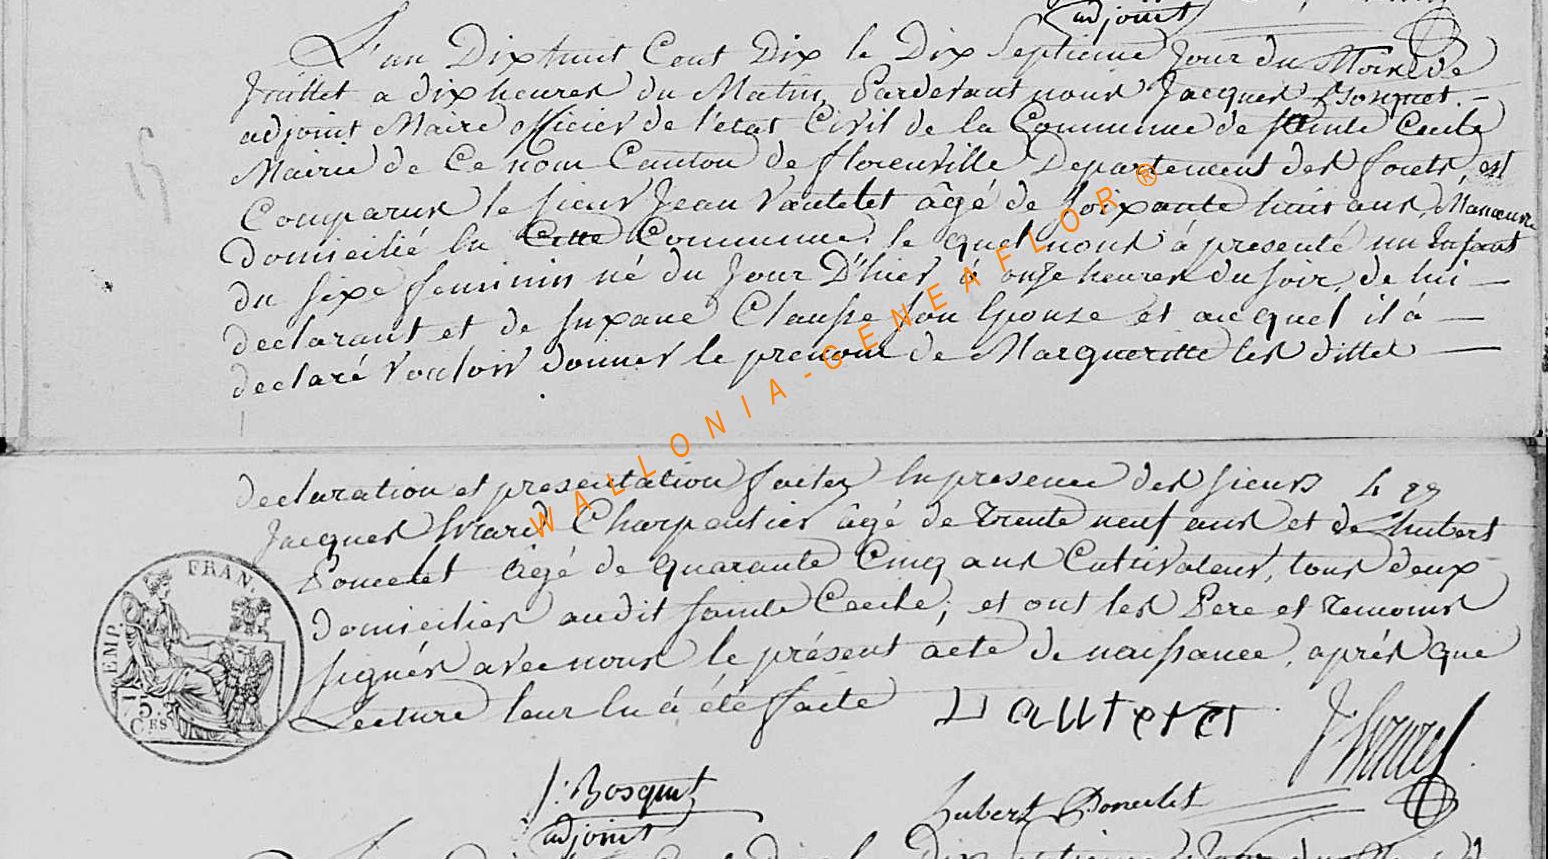 adjoint
L'an Dixhuit Cent Dix le Dix Septieme Jour du Mois de
Juillet a dix heures du Matin, Pardevant nous Jacques Bosquet
adjoint Maire officier de l'etat Civil de la Commune de Sainte Cecile
Mairie de Ce nom Canton de florenville Departement des forets, est
Comparus le sieur Jean Vautelet âgé de soixante huit ans, Manoeuvre
domicilié En Cette Commune, le quel nous à presenté un Enfant
du sexe feminin né du Jour D'hier à onze heures du soir, de lui
declarant et de suxane Clausse son Epouse et auquel il à
declaré vouloir donner le prenom de Margueritte les dittes
declaration et presentation faites En presence des sieurs
Jacques Evrard Charpentier âgé de Trente neuf ans et de hubert
Poncelet âgé de quarante Cinq ans Cultivateur, tous deux
domiciliés audit sainte Cecile; et ont les Pere et temoins
signés avec nous le présent acte de naissance, aprés que
Lecture leur En à été faite Vautelet J: Evrard
J: Bosquet Hubert Poncelet
adjoint
EMP. FRAN.
75
CES
WALLONIA-GENEAFLOR®